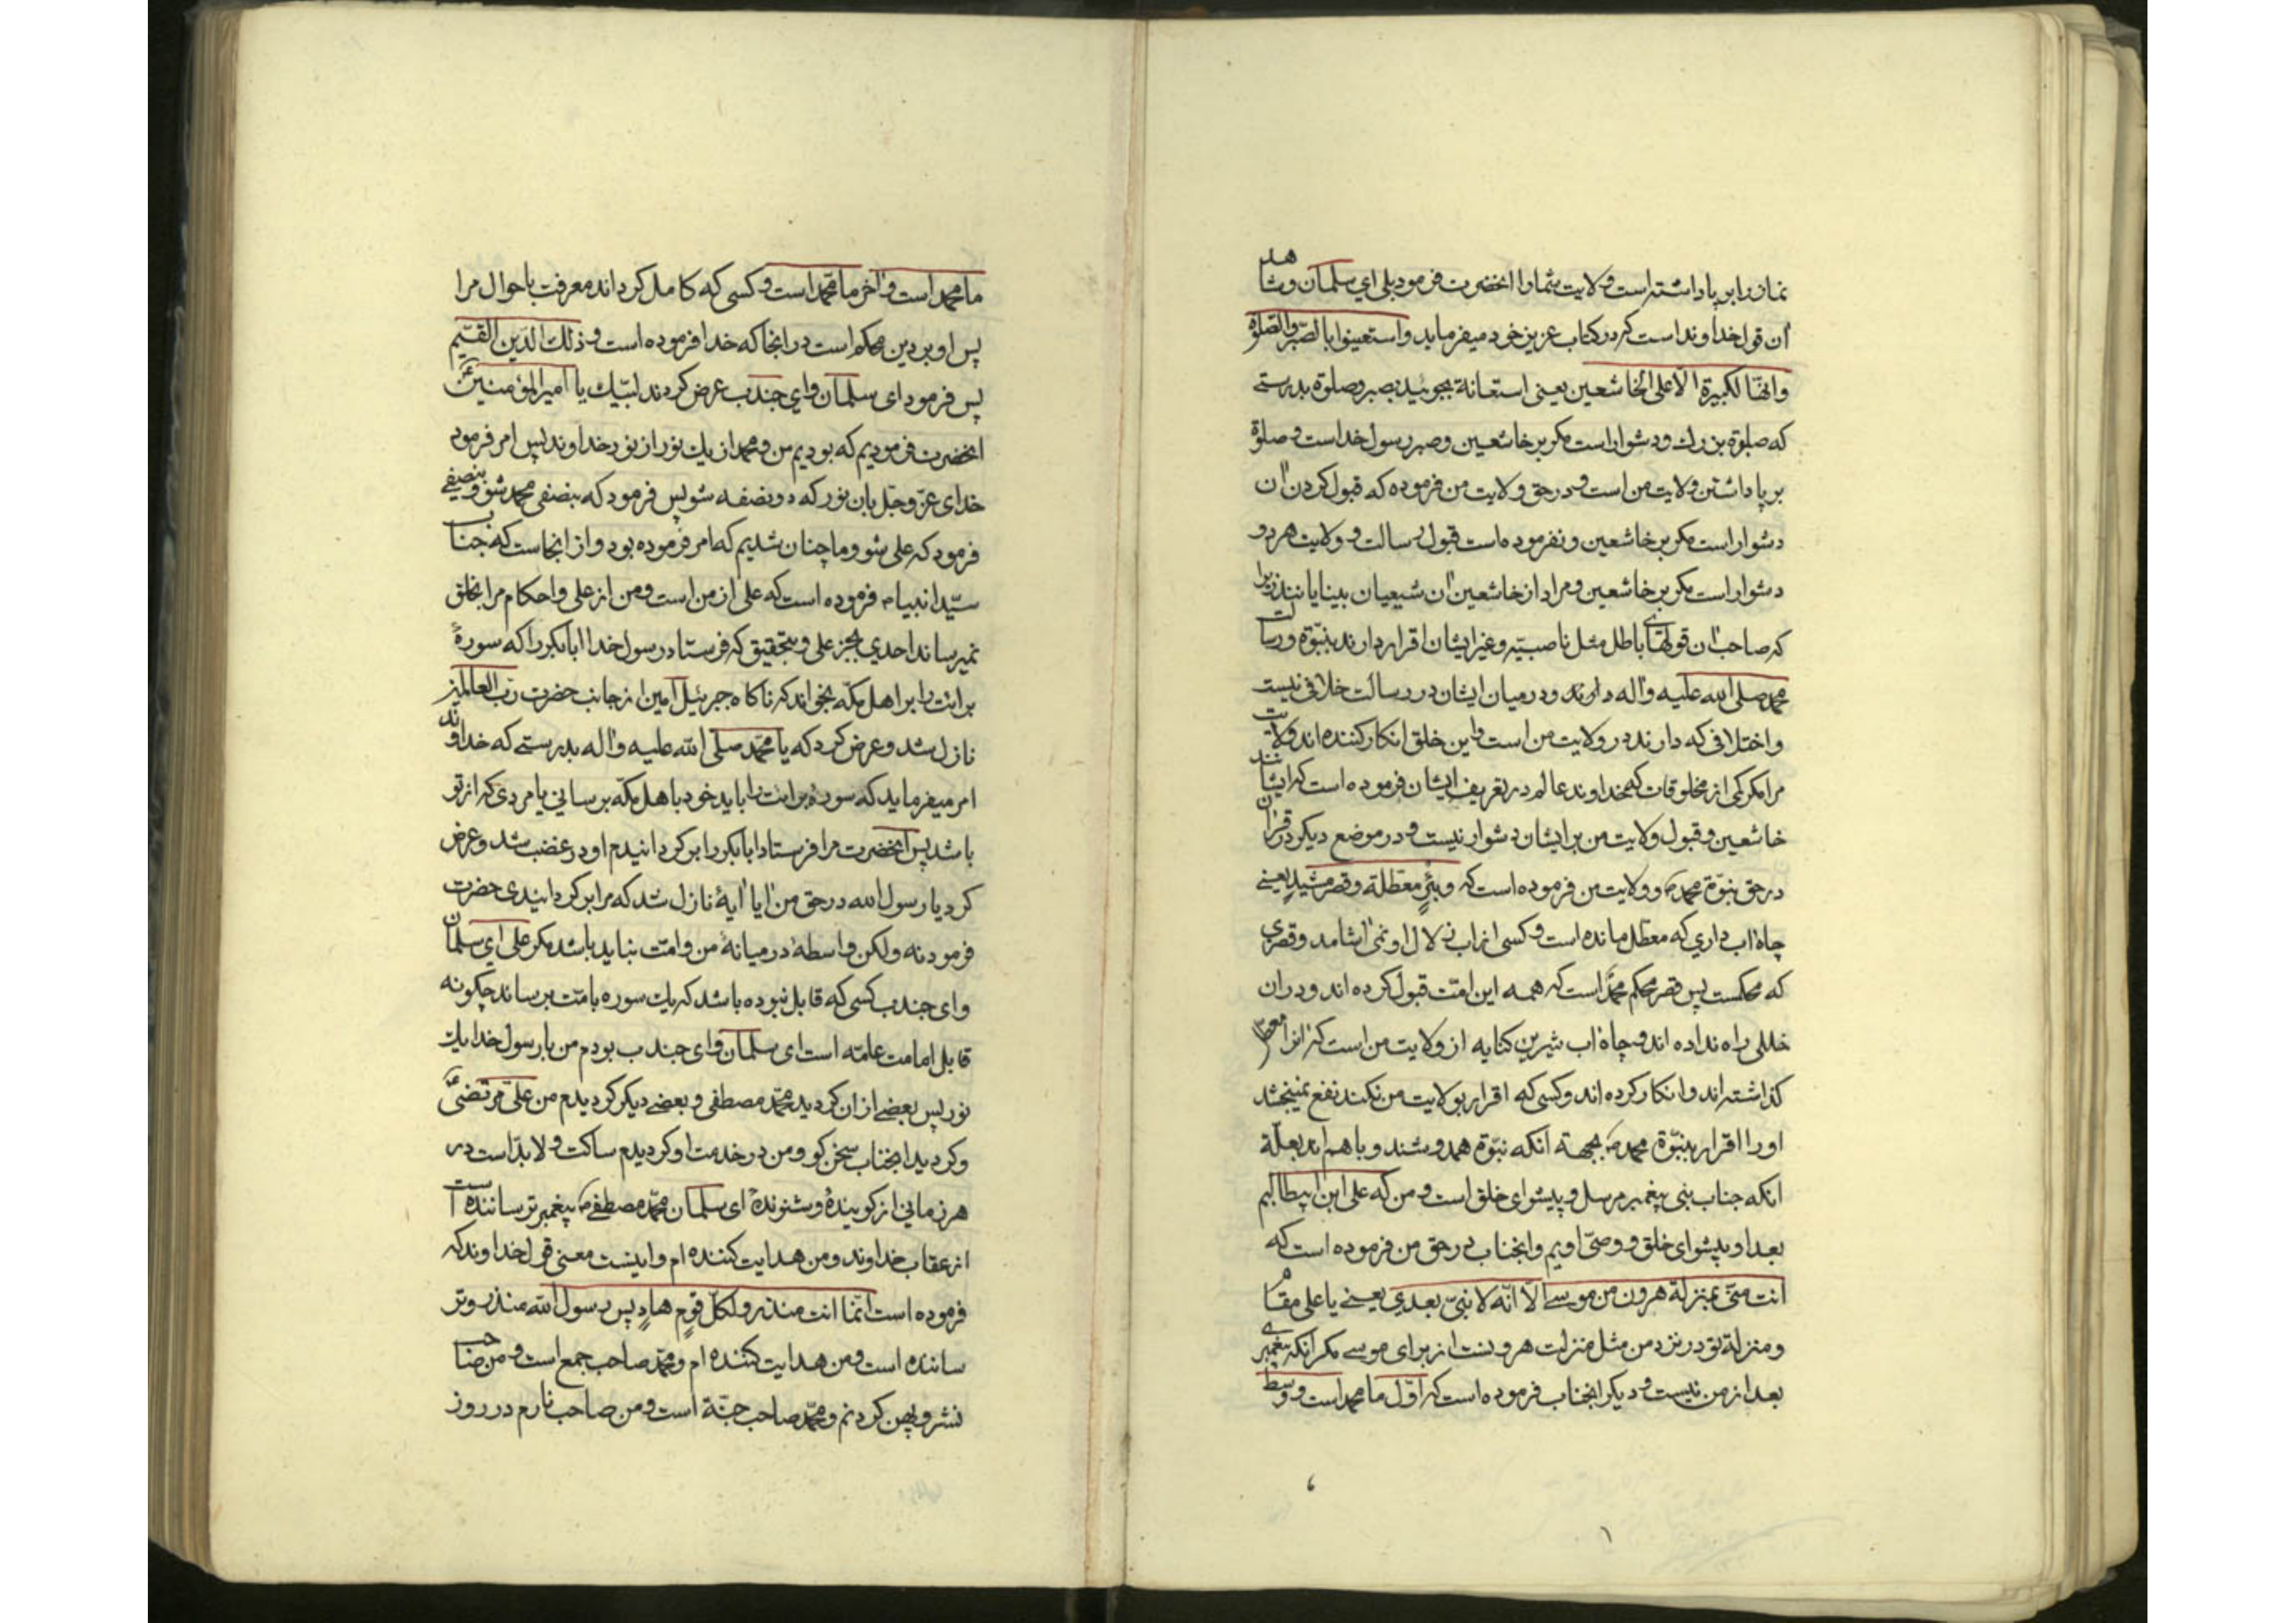 نماز را برپا داشته است ولایت شما را انحضرت فرمود بلی ای سلمان و شاهد
آن قول خداوند است که در کتاب عزیز خود میفرماید واستعینوا بالصبر والصلوة
وانها لکبیرة الا علی الخاشعین یعنی استعانة بجوئید بصبر و صلوة بدرستی
که صلوة بزرك و دشوار است مکر بر خاشعین و صبر رسول خداست و صلوة
برپا داشتن ولایت من است و در حق ولایت من فرموده که قبول کردن آن
دشوار است مکر بر خاشعین و نفرموده است قبول رسالت و ولایت هر دو
دشوار است مکر بر خاشعین و مراد از خاشعین آن شیعیان بینایانند زیرا
که صاحب آن قولهای باطل مثل ناصبیه و غیر ایشان اقرار دارند بنبوة و رسالت
محمد صلی الله علیه واله دارند و در میان ایشان در رسالت خلافی نیست
و اختلافی که دارند در ولایت من است و این خلق انکار کننده اند ولایت
مرا مکر کمی از مخلوقات که خداوند عالم در تعریف ایشان فرموده است که ایشانند
خاشعین و قبول ولایت من بر ایشان دشوار نیست و در موضع دیکر در قرآن
در حق نبوة محمد ص و ولایت من فرموده است که وبئر معطلة وقصر مشید یعنی
چاه اب داری که معطل مانده است و کسی از اب زلال او نمی آشامد و قصری
که محکمست پس قصر محکم محمد است که همه این امت قبول کرده اند و در ان
خللی راه نداده اند و چاه اب شیرین کنایه از ولایت من است که انرا معطل
کذاشته اند و انکار کرده اند و کسی که اقرار بولایت من نکند نفع نمیبخشد
او را اقرار بنبوة محمد ص بجهة انکه نبوة همدوشند و با هم اند بعلة
انکه جناب نبی پیغمبر مرسل و پیشوای خلق است و من که علی ابن ابیطالبم
بعد او پیشوای خلق و وصی اویم و انجناب در حق من فرموده است که
انت منی بمنزلة هرون من موسی الا انه لا نبی بعدی یعنی یا علی مقام
و منزلة تو در نزد من مثل منزلت هرونست از برای موسی مکر انکه پیغمبری
بعد از من نیست و دیکر انجناب فرموده است که اول ما محمد است و وسط
ما محمد است و آخر ما محمد است و کسی که کامل کرداند معرفت باحوال مرا
پس او بر دین محکم است در انجا که خدا فرموده است و ذلك الدین القیم
پس فرمود ای سلمان و ای جندب عرض کردند لبیك یا امیر المؤمنین ع
انحضرت فرمودیم که بودیم من و محمد از یك نور از نور خداوند پس امر فرمود
خدای عز و جل بان نور که دو نصفه شو پس فرمود که بنصفی محمد شو و بنصفی
فرمود که علی شو و ما چنان شدیم که امر فرموده بود و از اینجاست که جناب
سید انبیا م فرموده است که علی از من است و من از علی و احکام مرا بخلق
نمیرساند احدی بجز علی و بتحقیق که فرستاد رسول خدا ابابکر را که سورهٔ
برائت را بر اهل مکه بخواند که ناکاه جبرئیل امین از جانب حضرت رب العالمین
نازل شد و عرض کرد که یا محمد صلی الله علیه واله بدرستی که خداوند
امر میفرماید که سورهٔ برائت را باید خود باهل مکه برسانی یا مردی که از تو
باشد پس انحضرت مرا فرستاد ابابکر را برکردانیدم او در غضب شد و عرض
کرد یا رسول الله در حق من آیا آیهٔ نازل شد که مرا برکردانیدی حضرت
فرمود نه ولکن واسطهٔ در میانهٔ من و امت نباید باشد مکر علی ای سلمان
و ای جندب کسی که قابل نبوده باشد که یك سوره بامت برساند چکونه
قابل امامت عامه است ای سلمان و ای جندب بودم من با رسول خدا یك
نور پس بعضی از ان کردید محمد مصطفی و بعضی دیکر کردیدم من علی مرتضی
و کردید انجناب سخن کو و من در خدمت او کردیدم ساکت و لابد است در
هر زمانی از کویندهٔ و شنوندهٔ ای سلمان محمد مصطفی ص پیغمبر ترساننده است
از عقاب خداوند و من هدایت کننده ام و اینست معنی قول خداوند که
فرموده است انما انت منذر ولکل قوم هاد پس رسول الله منذر و تر
ساننده است و من هدایت کننده ام و محمد صاحب جمع است و من صاحب
نشر و پهن کردنم و محمد صاحب جنة است و من صاحب نارم در روز